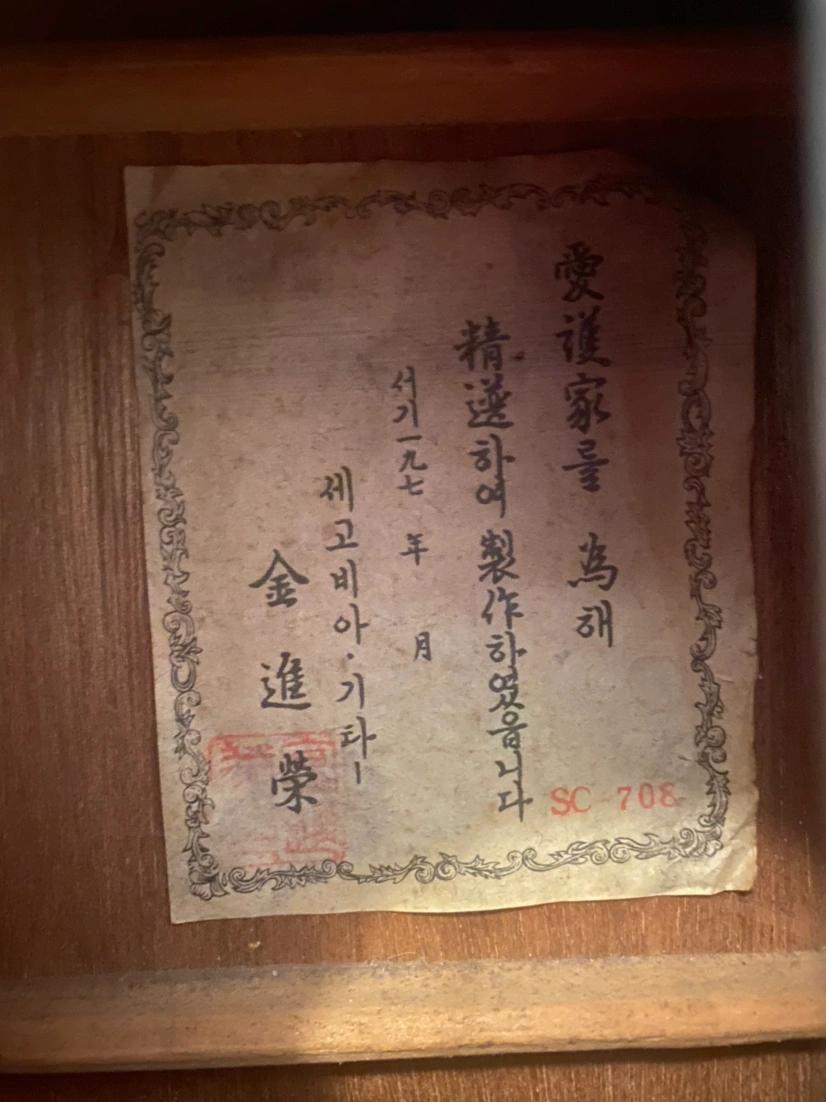 愛護家를 為해
精選하여 製作하였읍니다
서기一九七 年 月
세고비아·기타
金進榮
SC 708